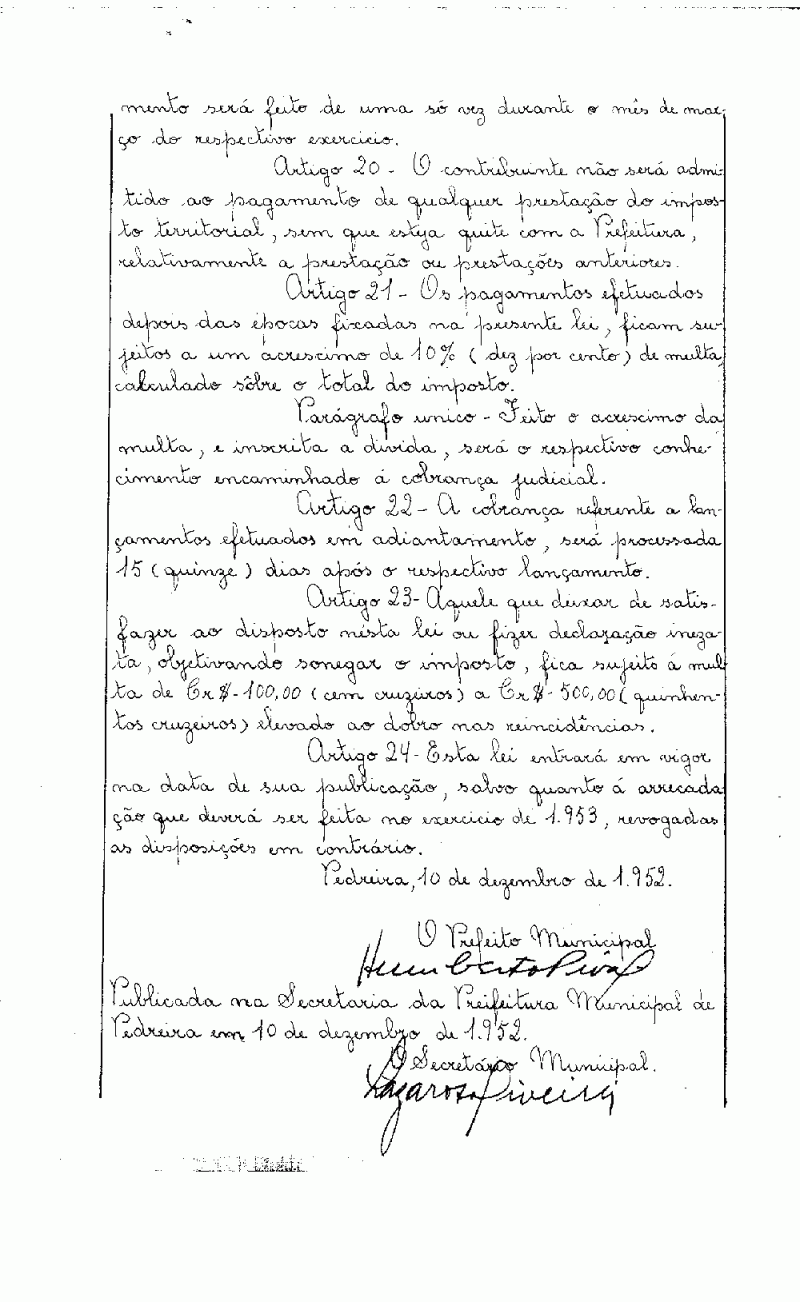 mento será feito de uma só vez durante o mês de mar-
ço do respectivo exercicio.
Artigo 20 - O contribuinte não será admi-
tido ao pagamento de qualquer prestação do impos-
to territorial, sem que esteja quite com a Prefeitura,
relativamente a prestação ou prestações anteriores.
Artigo 21 - Os pagamentos efetuados
depois das épocas fixadas na presente lei, ficam su-
jeitos a um acrescimo de 10% (dez por cento) de multa,
calculado sôbre o total do imposto.
Parágrafo unico - Feito o acrescimo da
multa, e inscrita a divida, será o respectivo conhe-
cimento encaminhado á cobrança judicial.
Artigo 22 - A cobrança referente a lan-
çamentos efetuados em adiantamento, será processada
15 (quinze) dias após o respectivo lançamento.
Artigo 23 - Aquele que deixar de satis-
fazer ao disposto nesta lei ou fizer declaração ineza-
ta, objetivando sonegar o imposto, fica sujeito á mul
ta de Cr$-100,00 (cem cruzeiros) a Cr$-500,00 (quinhen-
tos cruzeiros) elevado ao dobro nas reincidências.
Artigo 24 - Esta lei entrará em vigor
na data de sua publicação, salvo quanto á arrecada
ção que deverá ser feita no exercicio de 1.953, revogadas
as disposições em contrário.
Pedreira, 10 de dezembro de 1.952.
O Prefeito Municipal
Humberto Piva
Publicada na Secretaria da Preifeitura Municipal de
Pedreira em 10 de dezembro de 1.952.
O Secretário Municipal.